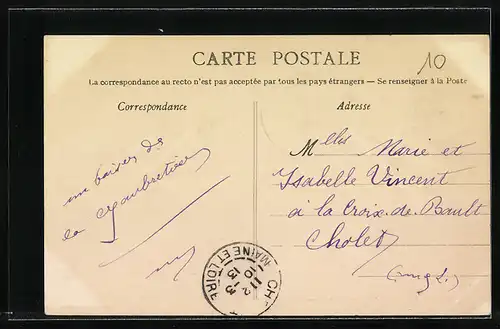 10
CARTE POSTALE
La correspondance au recto n'est pas acceptée par tous les pays étrangers — Se renseigner à la Poste
Correspondance
Adresse
un baiser de
la
Mlles Marie et
Isabelle Vincent
à la Croix de Bault
Cholet
MAINE ET LOIRE